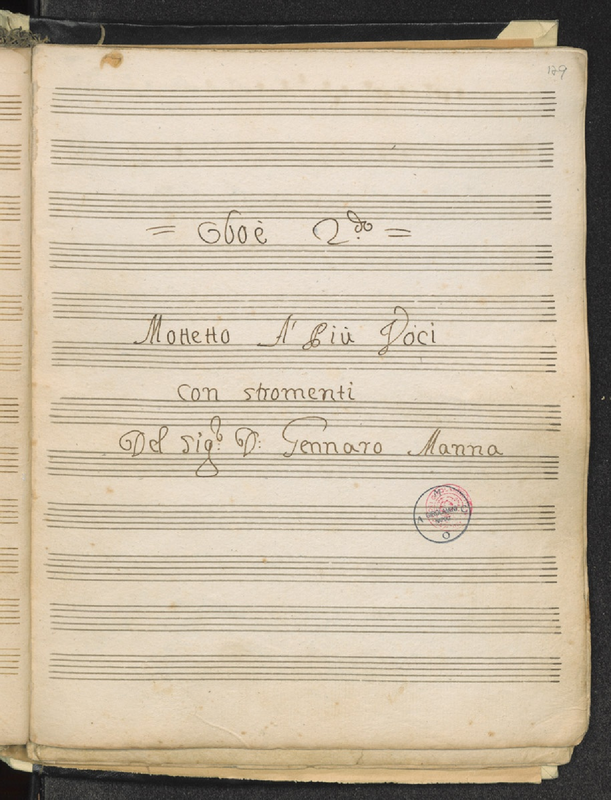 129
= Oboè 2.do =
Mottetto A' Più Voci
con stromenti
Del Sig.r D: Gennaro Manna
A M C O